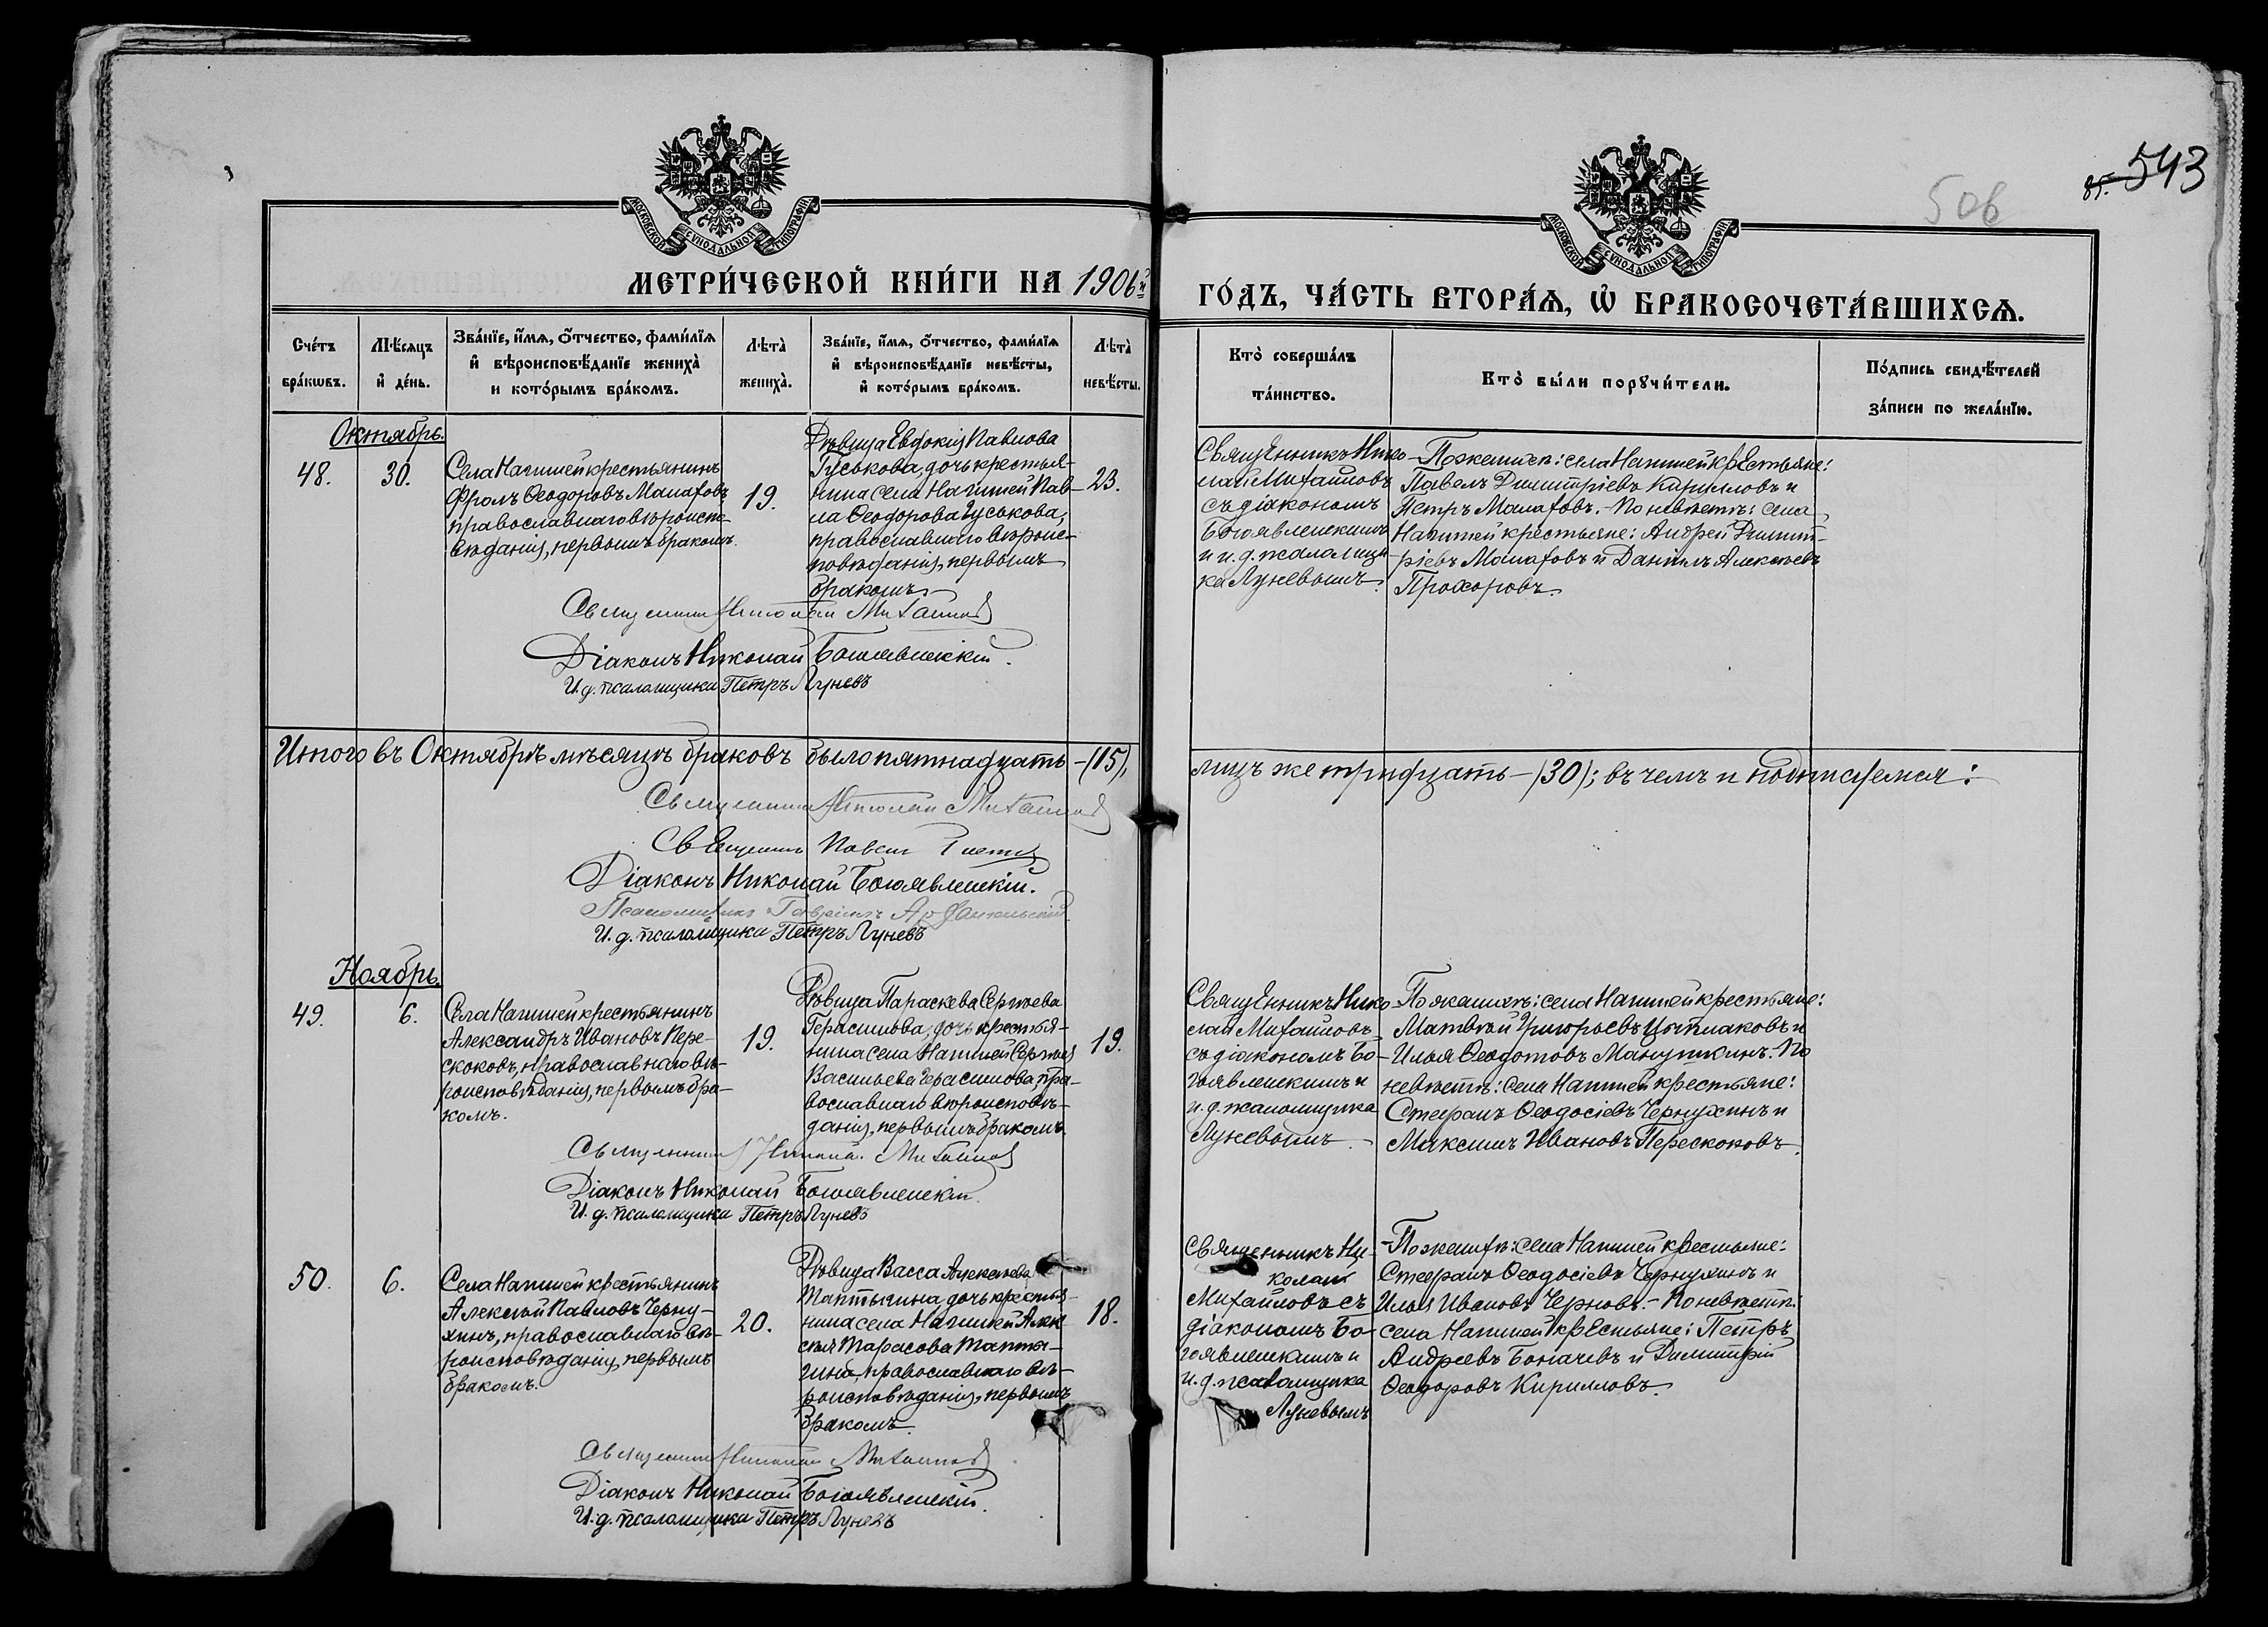 543
85.
506
МОСКОВСКОЙ СУНОДАЛЬНОЙ ТИПОГРАФІИ
МОСКОВСКОЙ СУНОДАЛЬНОЙ ТИПОГРАФІИ
МЕТРИ́ЧЕСКОЙ КНИ́ГИ НА 1906й
ГО́ДЪ, ЧА́СТЬ ВТОРА́Ѧ, Ѡ҆ БРАКОСОЧЕТА́ВШИХСѦ.
Сче́тъ бра́кѡвъ.
Мѣ́сяцъ и҆ де́нь.
Зва́нїе, и҆́мѧ, ѻ҆́тчество, фами́лїѧ
и҆ вѣроисповѣ́данїе жениха̀
и кото́рымъ бра́комъ.
Лѣта̀ жениха̀.
Зва́нїе, и҆́мѧ, ѻ҆́тчество, фами́лїѧ
и҆ вѣроисповѣ́данїе невѣ́сты,
и҆ кото́рымъ бра́комъ.
Лѣта̀ невѣ́сты.
Кто̀ соверша́лъ
та́инство.
Кто̀ бы́ли порꙋчи́тели.
По́дпись свидѣ́телей
за́писи по жела́нїю.
Октябрь.
48.
30.
Села Нагишей крестьянинъ
Фролъ Ѳеодоровъ Малаховъ
православнаго вѣроиспо-
вѣданія, первымъ бракомъ.
19.
Дѣвица Евдокія Павлова
Гуськова, дочь крестья-
нина села Нагишей Пав-
ла Ѳеодорова Гуськова,
православнаго вѣроис-
повѣданія, первымъ
бракомъ.
23.
Священникъ Нико-
лай Михайловъ
съ діакономъ
Богоявленскимъ
и и. д. псаломщи-
ка Луневымъ.
По женихѣ: села Нагишей крестьяне:
Павелъ Димитріевъ Кирилловъ и
Петръ Малаховъ. - По невѣстѣ: села
Нагишей крестьяне: Андрей Димит-
ріевъ Малаховъ и Даніилъ Алексѣевъ
Прохоровъ.
Священникъ Николай Михайловъ
Діаконъ Николай Богоявленскій.
И. д. псаломщика Петръ Луневъ
Итого въ Октябрѣ мѣсяцѣ браковъ было пятнадцать - (15),
лицъ же тридцать - (30); въ чемъ и подписуемся:
Священникъ Николай Михайловъ
Священникъ Павелъ
Діаконъ Николай Богоявленскій.
Псаломщикъ Гавріилъ Архангельскій
И. д. псаломщика Петръ Луневъ
Ноябрь.
49.
6.
Села Нагишей крестьянинъ
Александръ Ивановъ Пере-
скоковъ, православнаго вѣ-
роисповѣданія, первымъ бра-
комъ.
19.
Дѣвица Параскева Сергѣева
Герасимова, дочь крестья-
нина села Нагишей Сергѣя
Васильева Герасимова, пра-
вославнаго вѣроисповѣ-
данія, первымъ бракомъ.
19.
Священникъ Нико-
лай Михайловъ
съ діакономъ Бо-
гоявленскимъ и
и. д. псаломщика
Луневымъ.
По женихѣ: села Нагишей крестьяне:
Матвѣй Григорьевъ и
Илья Ѳеодотовъ Манушкинъ. По
невѣстѣ: села Нагишей крестьяне:
Стефанъ Ѳеодосіевъ Чернухинъ и
Максимъ Ивановъ Перескоковъ.
Священникъ Николай Михайловъ
Діаконъ Николай Богоявленскій.
И. д. псаломщика Петръ Луневъ
50.
6.
Села Нагишей крестьянинъ
Алексѣй Павловъ Черну-
хинъ, православнаго вѣ-
роисповѣданія, первымъ
бракомъ.
20.
Дѣвица Васса Алексѣева
Таптыгина, дочь крестья-
нина села Нагишей Алек-
сѣя Тарасова Тапты-
гина, православнаго вѣ-
роисповѣданія, первымъ
бракомъ.
18.
Священникъ Ни-
колай
Михайловъ съ
діакономъ Бо-
гоявленскимъ и
и. д. псаломщика
Луневымъ
По женихѣ: села Нагишей крестьяне:
Стефанъ Ѳеодосіевъ Чернухинъ и
Илья Ивановъ Черновъ. - По невѣстѣ:
села Нагишей крестьяне: Петръ
Андреевъ Богачевъ и Димитрій
Ѳеодоровъ Кирилловъ.
Священникъ Николай Михайловъ
Діаконъ Николай Богоявленскій.
И. д. псаломщика Петръ Луневъ